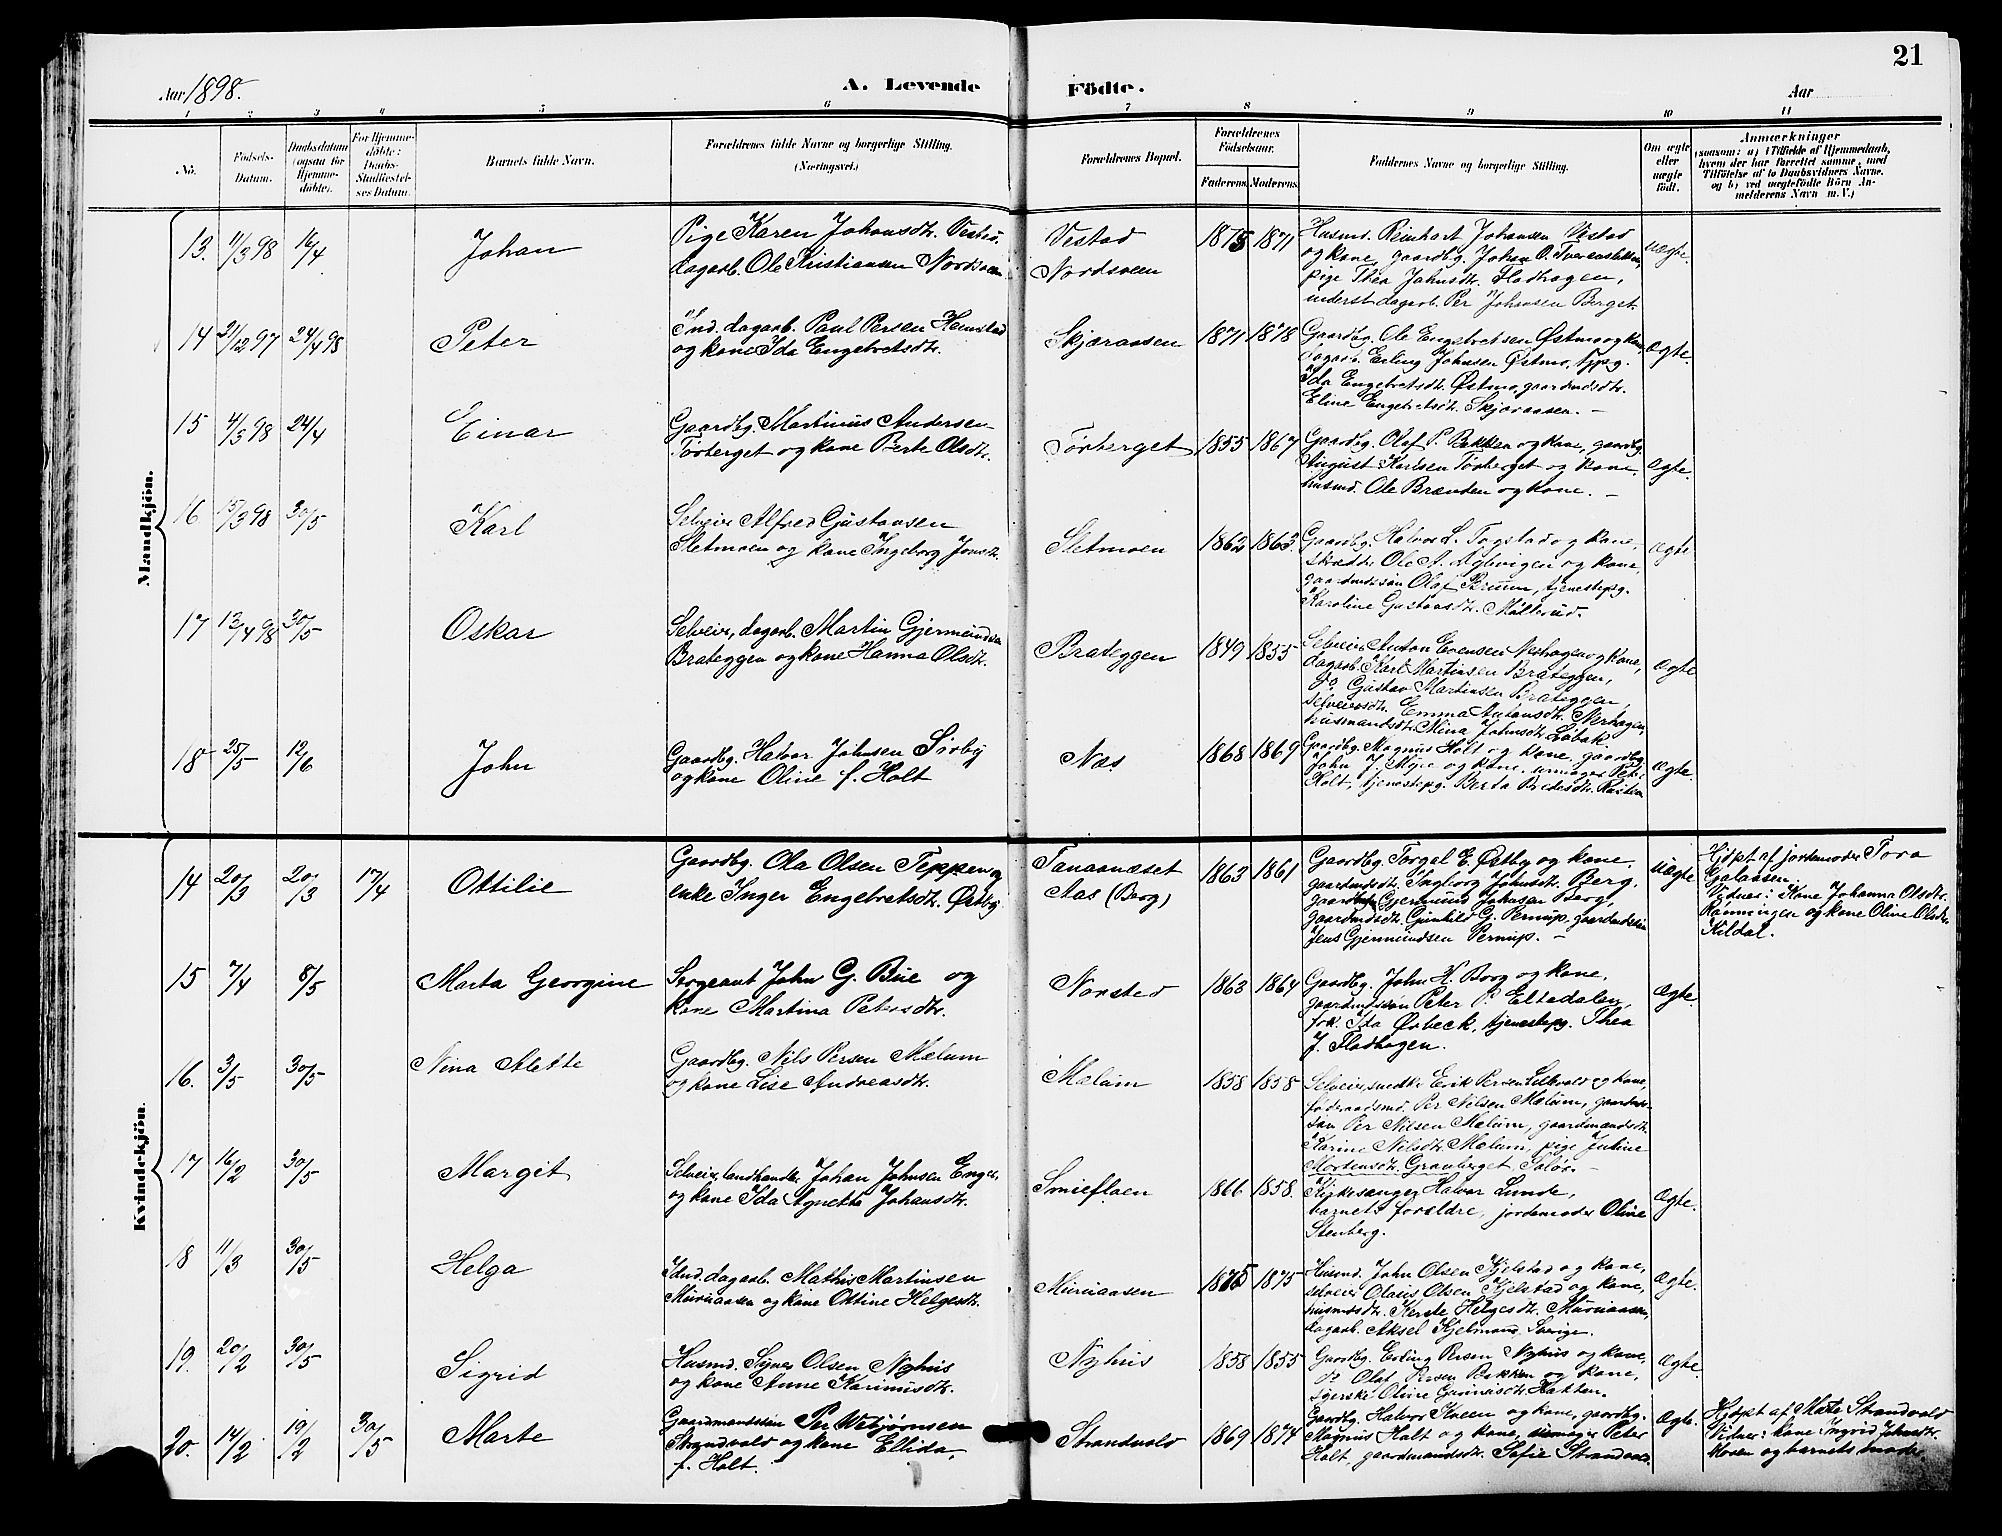 21
Aar 1898.
A. Levende Födte.
Aar
1 2 3 4 5 6 7 8 9 10 11
No.
Födsels-Datum.
Daabsdatum (ogsaa for Hjemmedöbte).
For Hjemmedöbte: Daabs-Stadfæstelses Datum.
Barnets fulde Navn.
Forældrenes fulde Navne og borgerlige Stilling. (Næringsvei.)
Forældrenes Bopæl.
Forældrenes Födselsaar.
Faderens. Moderens.
Faddernes Navne og borgerlige Stilling.
Om ægte eller uægte födt.
Anmærkninger
(saasom: a) i Tilfælde af Hjemmedaab, hvem der har forrettet samme, med Tilföielse af to Daabsvidners Navne, og b) ved uægtefödte Börn Anmelderens Navn m. V.)
Mandkjön.
13. 11/3 98 16/4 Johan
Pige Karen Johansdtr. Vestad.
dagarb. Ole Kristiansen Nordsveen
Vestad
Nordsveen
1875 1871
Husmd. Reinhart Johansen Vestad
og kone, gaardbg. Johan O.
pige Thea Johnsdtr. Fladhagen,
underst dagarb. Per Johansen Berget.
uægte.
14 21/12 97 24/4 98 Peter
Ind. dagarb. Paul Persen Hemstad
og kone Ida Engebretsdtr.
Skjæraasen
1871 1878
Gaardbg. Ole Engebretsen Østmo og kone,
dagarb. Erling Johnsen Østmo, tjpg.
Ida Engebretsdtr. Østmo, gaardmdsdtr.
Eline Engebretsdtr. Skjæraasen. –
ægte.
15 4/3 98 24/4 Einar
Gaardbg. Martinius Andersen
Törberget og kone Berte Olsdtr.
Törberget
1855 1867
Gaardbg. Olaf P. Bakken og kone, gaardbg.
August Karlsen Törberget og kone.
husmd. Ole Brænden og kone. –
ægte.
16 15/3 98 30/5 Karl
Selveier Alfred Gustavsen
Sletmoen og kone Ingeborg Jensdtr.
Sletmoen
1862 1863
Gaardbg. Halvor L. Togstad og kone,
skrædder Ole A. Nybvigen og kone,
gaardmdssön Olaf, tjenestepg.
Karoline Gustavsdtr. Mölterud.
ægte
17 13/4 98 30/5 Oskar
Selveier, dagarb. Martin Gjermundsen
Brateggen og kone Hanna Olsdtr.
Brateggen
1849 1855
Selveier Anton Evensen Nerhagen og kone,
dagarb. Karl Martinsen Brateggen,
do Gustav Martinsen Brateggen,
selveiersdtr. Emma Antonsdtr. Nerhagen,
husmandsdtr. Mina Johnsdtr. Löbak.
ægte
18 25/5 12/6 John
Gaardbg. Halvor Johnsen Sörby
og kone Oline f. Holt
Næs
1868 1869
Gaardbg. Magnus Holt og kone, gaardbg.
John J. Myre og kone, urmager Peter
Holt, tjenestepg. Berta Pedersdtr.
ægte.
Kvindekjön.
14 20/3 20/3 17/4 Ottilie
Gaardbg. Ola Olsen Teppen og
enke Inger Engebretsdtr. Østby
Tanaanæset
Aas (Berg)
1863 1861
Gaardbg. Torgal E. Østby og kone,
gaardmdsdtr. Ingborg Johnsdtr. Berg,
gaardbg. Gjermund Johnsen Berg,
gaardmdsdtr. Gunhild G. Pernup, gaardmdssön
Jens Gjermundsen Pernup. –
uægte
Hjdpt af jordemoder Tora
Galaasen.
Vidner: Kone Johanna Olsdtr.
Rönningen og kone Oline Olsdtr
Kildal.
15 7/4 8/5 Marta Georgine
Sergeant John G. Bue og
kone Martina Petersdtr.
Norsted
1863 1864
Gaardbg. John H. Borg og kone,
gaardmdssön Peter P. Eltadalen,
frk. Ida Ørbeck, tjenestepg. Thea
J. Fladhagen.
ægte.
16. 3/5 30/5 Nina Alette
Gaardbg. Nils Persen Mælum
og kone Lise Andreasdtr.
Mælum
1858 1858
Selveier, snedker Erik Persen Lillevold og kone,
föderaadsmd. Per Nilsen Mælum, gaardmds-
sön Per Nilsen Mælum, gaardmandsdtr.
Karine Nilsdtr. Mælum, pige Juline
Mortensdtr. Granberget, Solör. –
17 16/2 30/5 Margit
Selveier, landhandler Johan Johnsen Enger
og kone Ida Agnette Johansdtr.
Smieflaen
1866 1858.
Kirkesanger Halvor Lunde,
barnets forældre, jordemoder Oline
Stenberg.
ægte.
18 11/3 30/5 Helga
Ind. dagarb. Mathis Martinsen
Muruaasen og kone Ottine Helgesdtr.
Muruaasen
1875 1875
Husmd. John Olsen Kjelstad og kone,
selveier Olaus Olsen Kjelstad og kone,
husmdsdtr. Kerste Helgesdtr. Muruaasen,
dagarb. Aksel Kjelmand, Sverige.
ægte.
19. 20/2 30/5 Sigrid
Husmd. Syver Olsen Nyhus
og kone Anne Karinusdtr.
Nyhus
1858 1855
Gaardbg. Erling Persen Nyhus og kone,
do Olaf Persen Bakken og kone,
syerske Oline Gunnusdtr. Hatten.
ægte.
20. 14/2 19/2 30/5 Marte
Gaardmandssön Per Vebjörnsen
Strandvold og kone Ellida,
f. Holt.
Strandvold
1869 1874
Gaardbg. Halvor Kveen og kone, gaardbg.
Magnus Holt og kone, urmager Peter
Holt, gaardmandsdtr. Sofie Strandvold.
ægte.
Hjdpt af Mate Strandvold
Vidner: kone Ingrid Johnsdtr.
Moren og barnets moder.